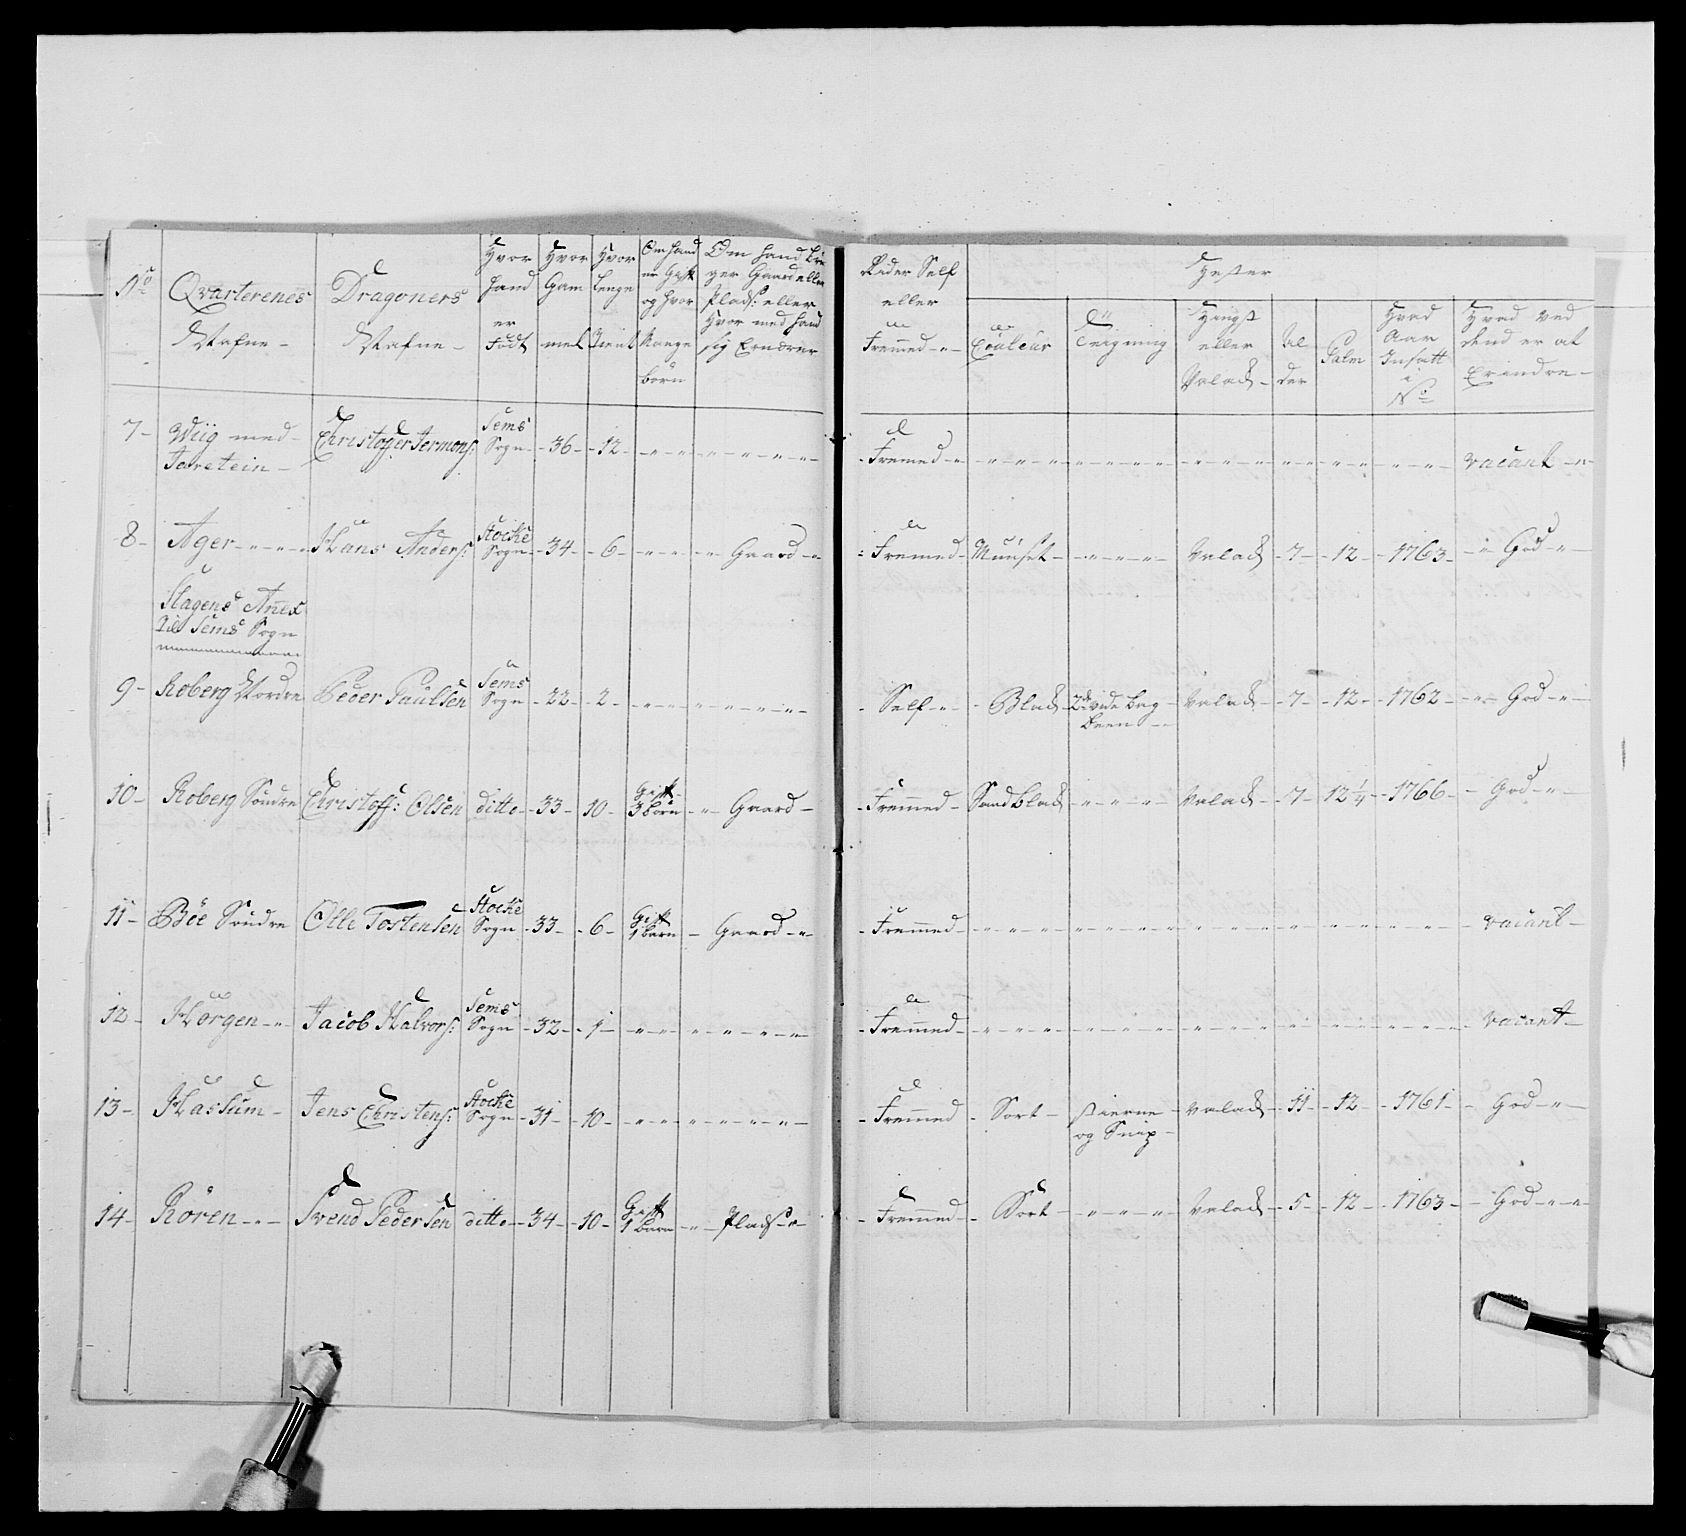 No
Qvarterenes Nafne
Dragoners Nafne
Hvor hand er Födt
Hvor Gammel
Hvor lenge Tient
Om hand er Gift og hvor Mange börn
Om hand bruger Gaard eller Plads: eller Hvor med hand sig Ernærer
Rider Self eller Fremmed
Hester
Couleur
Teigning
Hingst eller Valack
Alder
Palm
Hvad Aar Insatt i No
Hvad ved dend er at Erindre
7 Wiig med Jarstein Christoffer Jermons: Sems Sogn 36 12 Fremed vacant
8 Ager Hans Anders: Stocke Sogn 34 6 Gaard Fremed Muuset Valack 7 12 1763 God
Slagens Anex
Til Sems Sogn
9 Roberg Nordre Peder Paulsen Sems Sogn 22 2 Self Black 2de hvide bag been Valack 7 12 1762 God
10 Roberg Söndre Christoff: Olsen ditto 33 10 Gift 3 börn Gaard Fremmed Sandblack Valack 7 12 1/4 1766 God
11 Böe Söndre Olle Tostensen Stocke Sogn 33 6 Gift 1 barn Gaard Fremmed vacant
12 Horgen Jacob Halvors: Sems Sogn 32 1 Fremmed vacant
13 Hassum Jens Christens: Stocke Sogn 31 10 Fremmed Sort stierne og Snip Valack 11 12 1761 God
14 Rören Svend Pedersen ditto 34 10 Gift 1 barn Plads Fremmed Sort Valack 5 12 1763 God